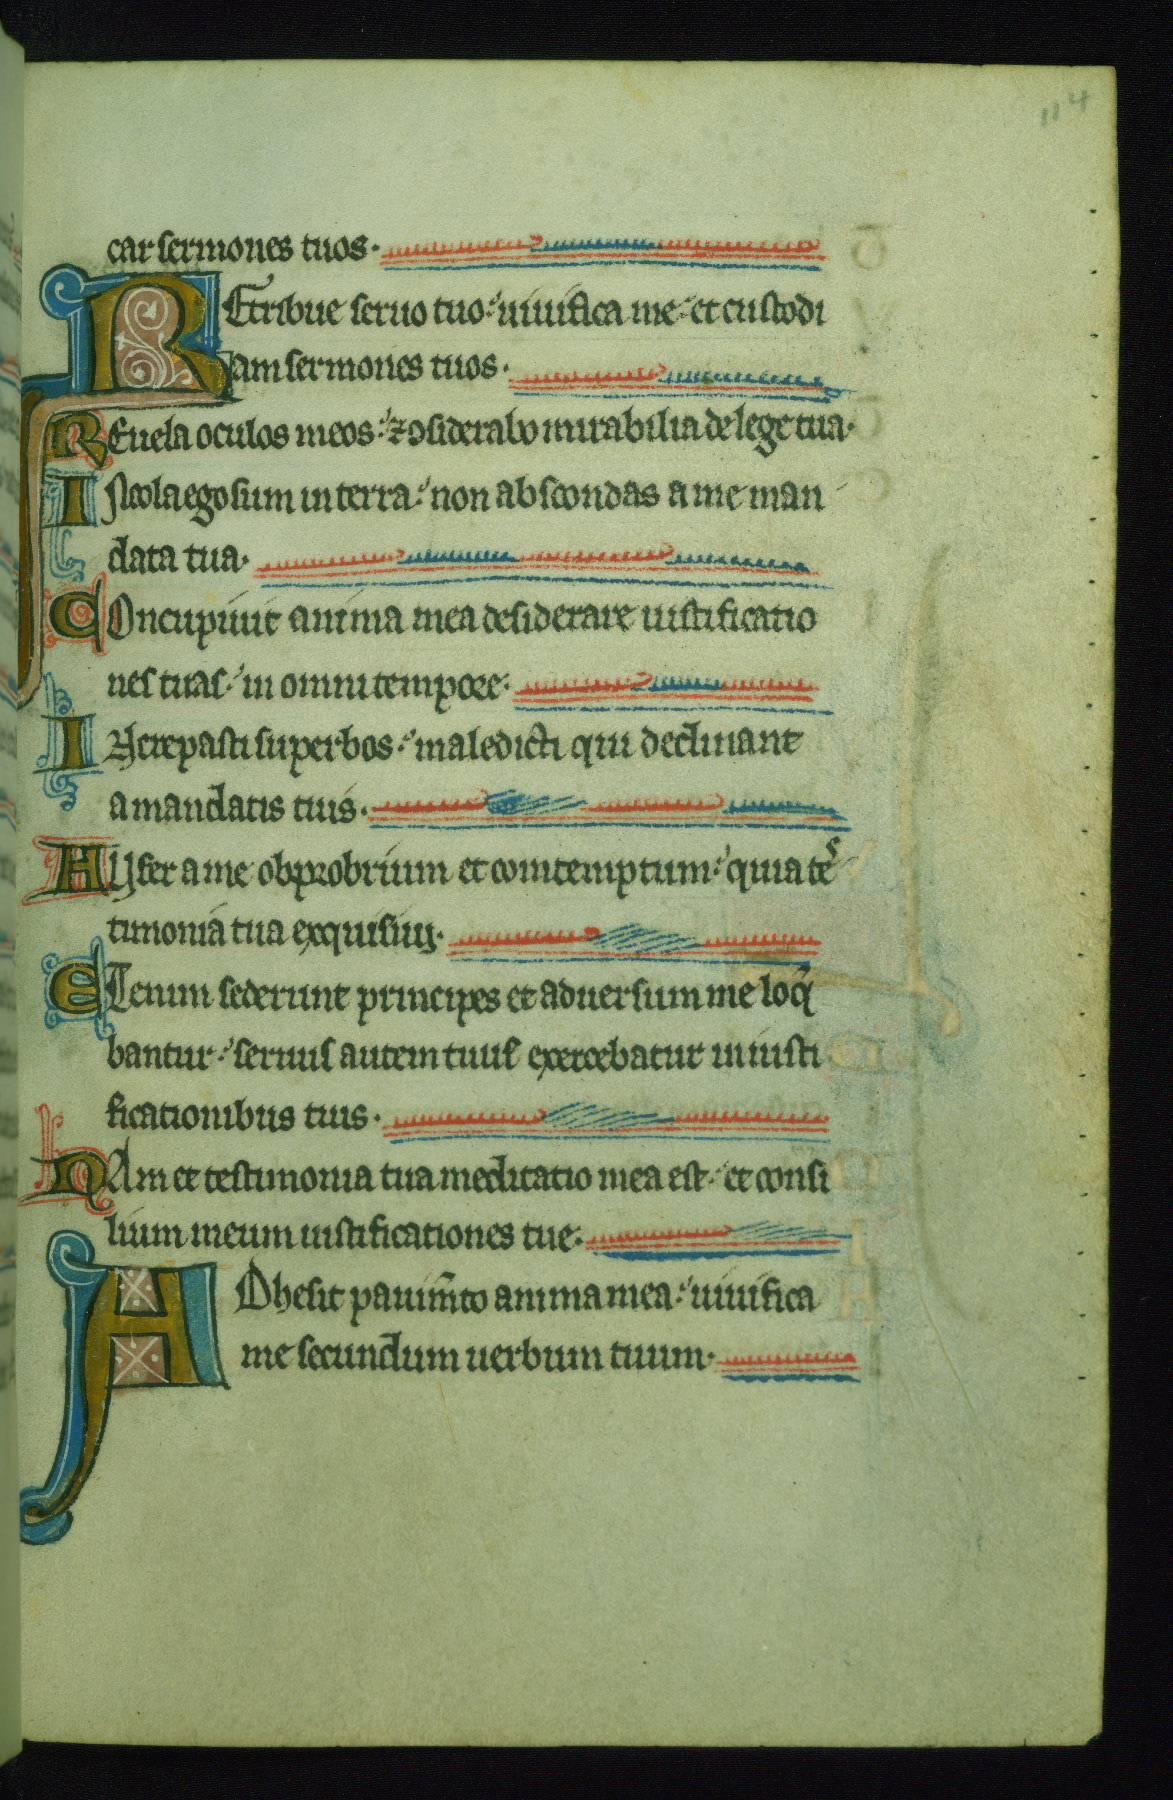 114
car sermones tuos.
REtribue seruo tuo: uiuifica me: et custodi
am sermones tuos.
REuela oculos meos: ⁊ ↄsiderabo mirabilia de lege tua.
INcola ego sum in terra: non abscondas a me man
data tua.
COncupiuit anima mea desiderare iustificatio
nes tuas: in omni tempore.
INcrepasti superbos: maledicti qui declinant
a mandatis tuis.
AUfer a me obprobrium et comtemptum: quia tes
timonia tua exquisiui.
ETenim sederunt principes et aduersum me loq̄
bantur: seruus autem tuus exercebatur in iusti
ficationibus tuis.
NAm et testimonia tua meditatio mea est: et consi
lium meum iustificationes tue.
ADhesit pauim̄to anima mea: uiuifica
me secundum uerbum tuum.